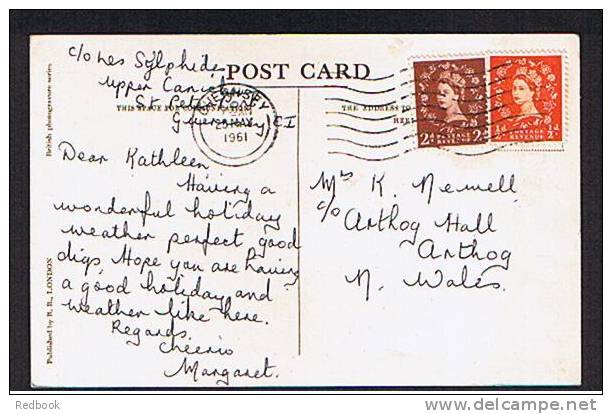 c/o Les Sylphides
Upper Canichers
St. Peter Port
Guernsey C.I
POST CARD
THIS SPACE FOR COMMUNICATION
THE ADDRESS TO
HERE
GUERNSEY
MAY
1961
2d POSTAGE REVENUE 2d
½d POSTAGE REVENUE ½d
British photogravure series
Published by R. B., LONDON
Dear Kathleen
Having a
wonderful holiday
weather perfect, good
digs. Hope you are having
a good holiday and
weather like here.
Regards,
Cheerio
Margaret.
Mrs K. Newell
c/o Arthog Hall
Arthog
N. Wales.
Redbook
delcampe.net